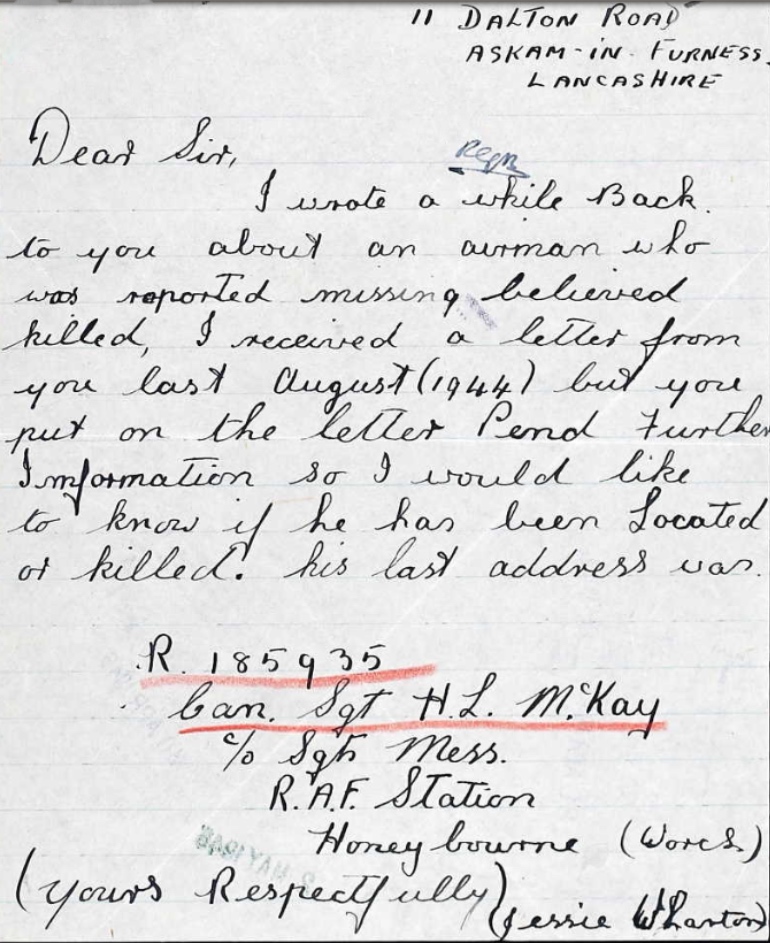 11 DALTON ROAD
ASKAM-IN-FURNESS.
LANCASHIRE
Dear Sir,
Regn
I wrote a while Back.
to you about an airman who
was reported missing believed
killed, I received a letter from
you last August (1944) but you
put on the letter Pend Further
Information so I would like
to know if he has been Located
or killed. his last address was.
R. 185935
Can. Sgt H.L. McKay
c/o Sgts Mess.
R.A.F. Station
Honeybourne (Worcs.)
(Yours Respectfully)
(Jessie Wharton)